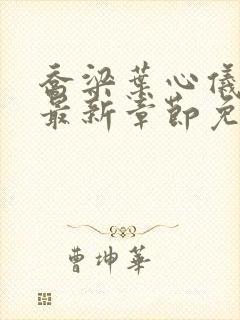 乔梁葉心儀
最新章節免
曹坤華